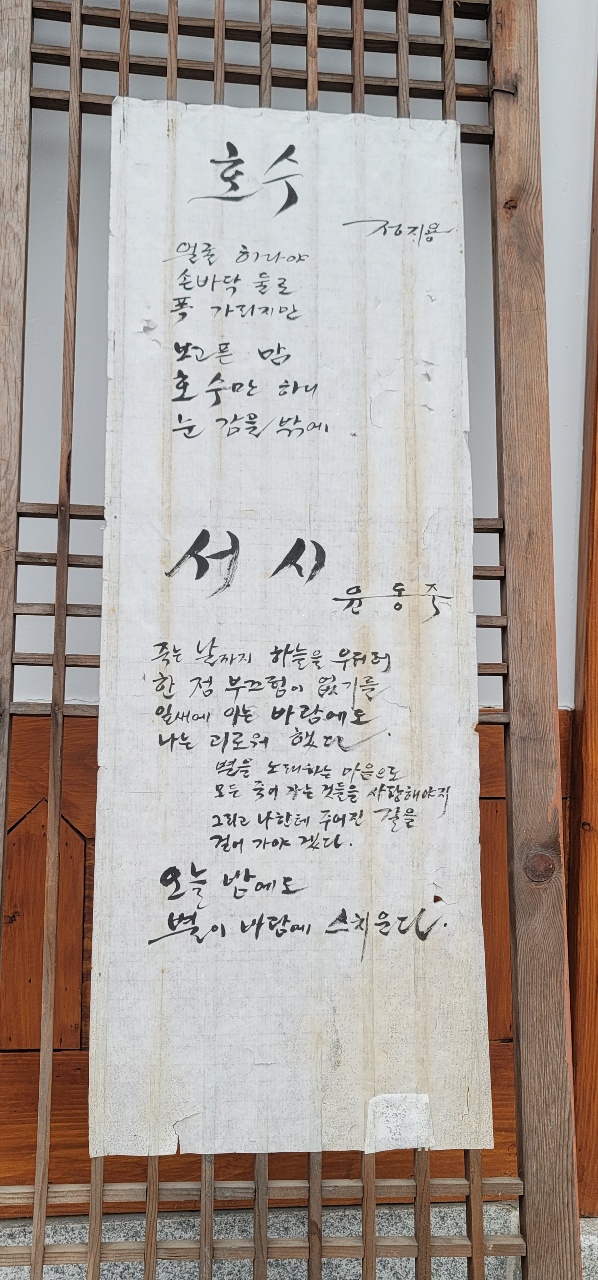 호수
정지용
얼골 하나야
손바닥 둘로
폭 가리지만
보고픈 맘
호수만 하니
눈 감을 밖에.
서 시
윤 동 주
죽는 날까지 하늘을 우러러
한 점 부끄럼이 없기를
잎새에 이는 바람에도
나는 괴로워 했다.
별을 노래하는 마음으로
모든 죽어 가는 것들을 사랑해야지
그리고 나한테 주어진 길을
걸어 가야 겠다.
오늘 밤에도
별이 바람에 스치운다.